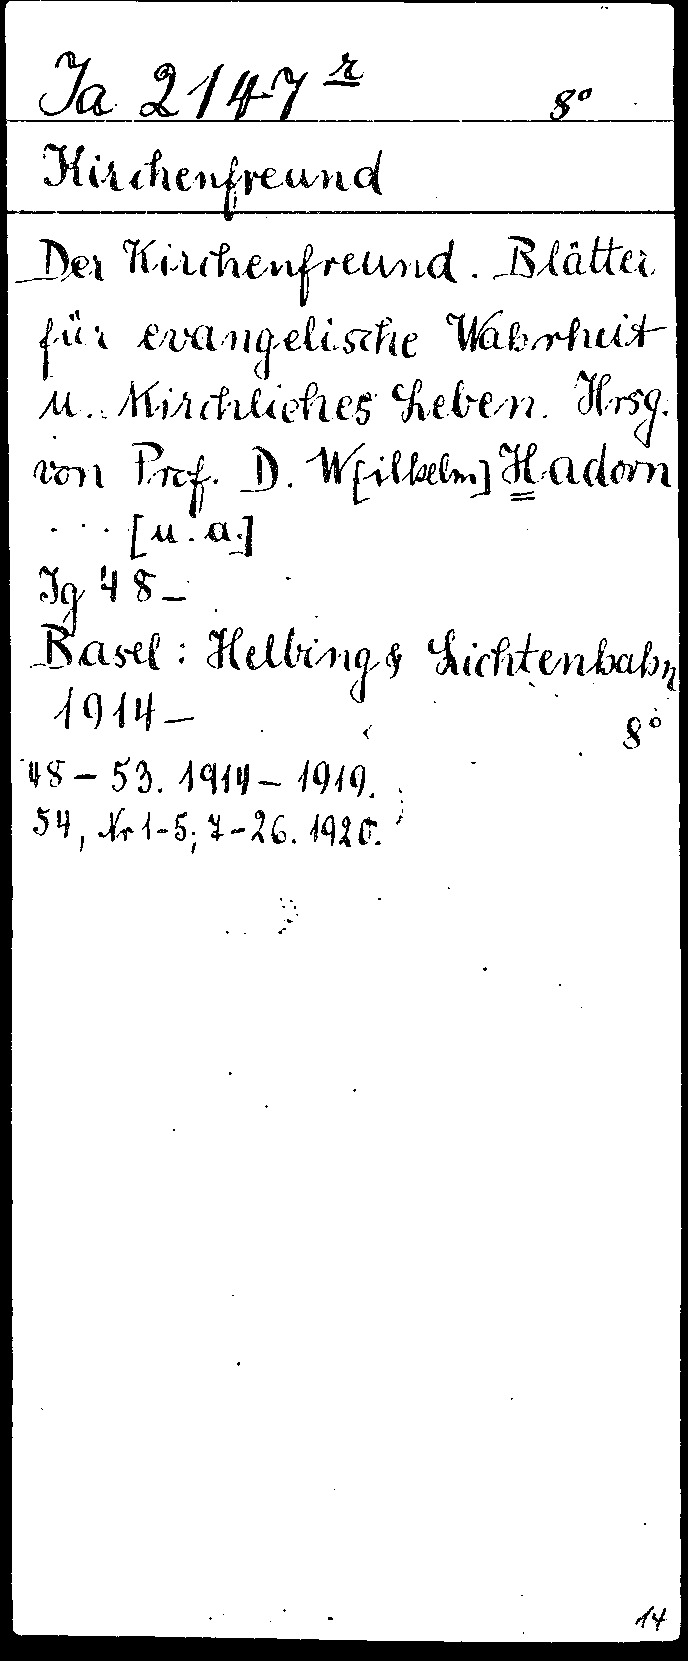 Ja 2147 r 8°
Kirchenfreund
Der Kirchenfreund. Blätter
für evangelische Wahrheit
u. Kirchliches Leben. Hrsg.
von Prof. D. W[ilhelm] Hadorn
... [u. a.]
Jg 48–
Basel: Helbing & Lichtenhahn
1914– 8°
48 – 53. 1914 – 1919.
54, Nr 1-5; 7-26. 1920.
14